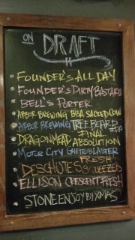 ON
DRAFT
FOUNDER'S ALL DAY
FOUNDER'S DIRTY BASTARD
BELL'S PORTER
ARBOR BREWING BBA
ARBOR BREWING
FINAL
DRAGONMEAD ABSOLUTION
MOTOR CITY GHETTOBLASTER
FRESH
DESCHUTES
ELLISON CRESCENT FRESH
STONE ENJOY BY XMAS